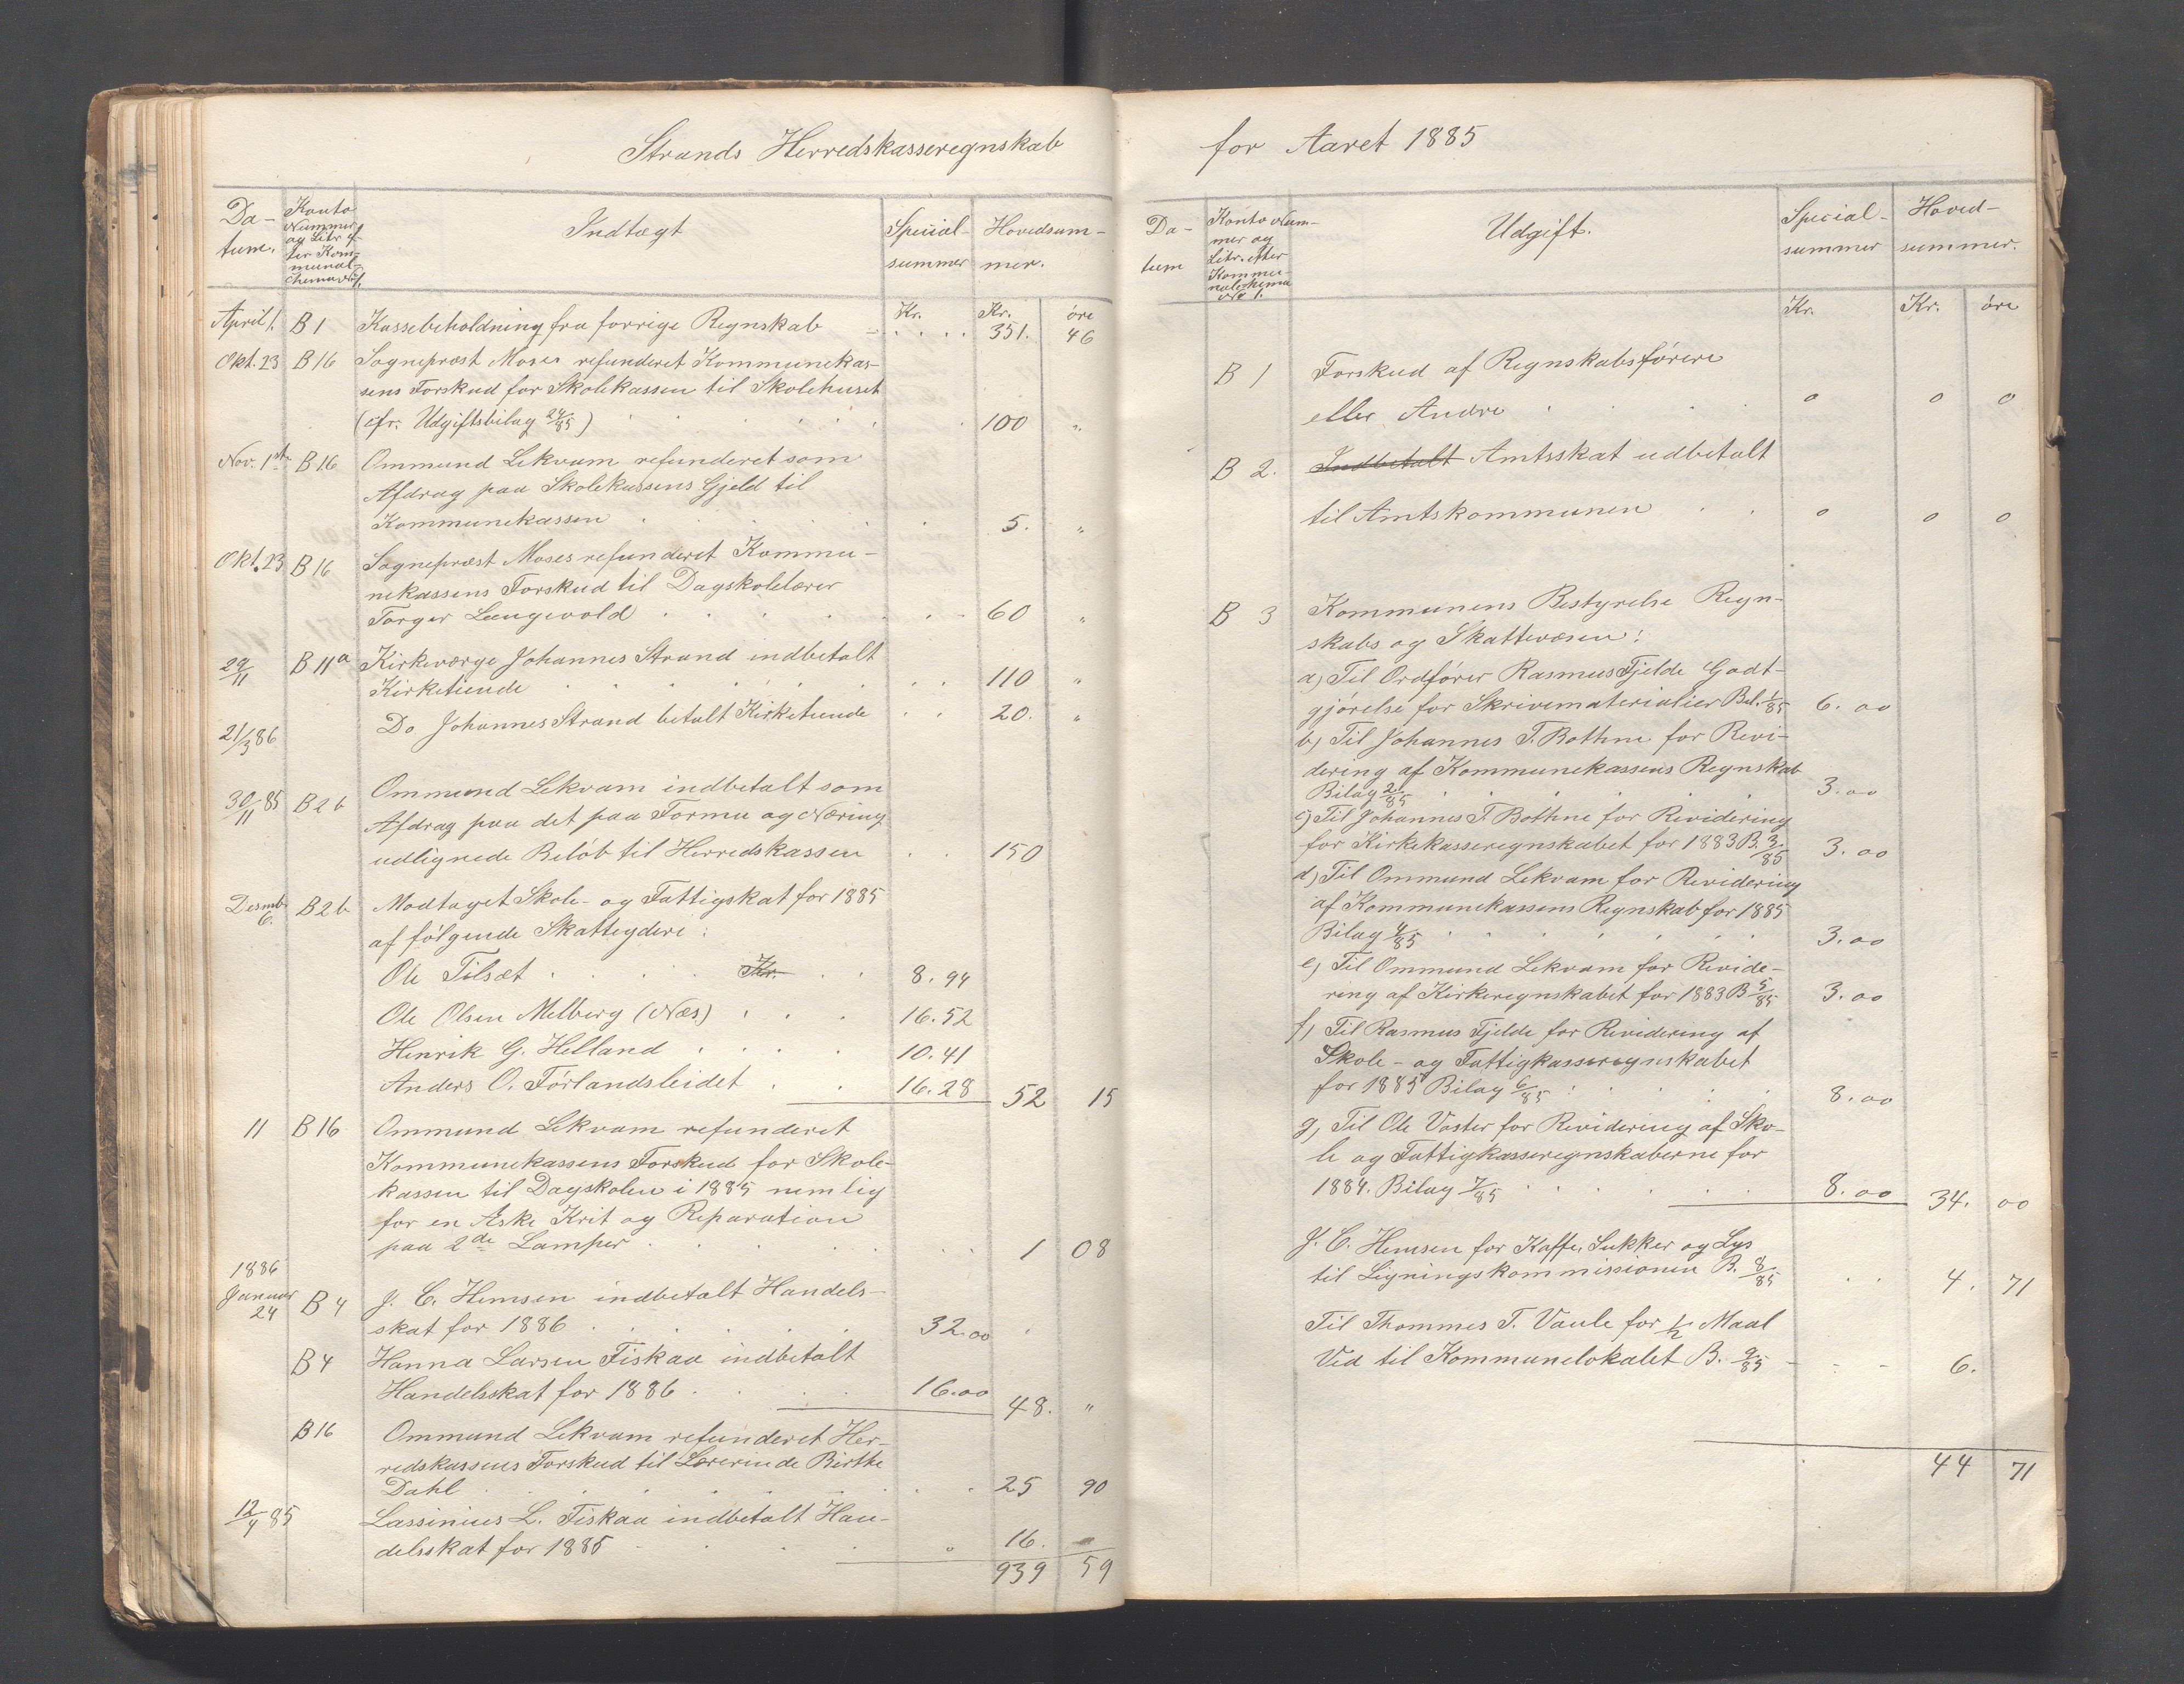 Strands Herredskasseregnskab
Da-
tum.
Konto
Nummer
og Litr. ef-
ter Kom-
munal-
schema No 1.
Indtægt
Special-
summer
Hovedsum-
mer.
Kr.
Kr.
öre
April 1. B 1 Kassebeholdning fra forrige Regnskab 351. 46
Okt. 23 B 16 Sognepræst Moses refunderet Kommunekas-
sens Forskud for Skolekassen til Skolehuset
(cfr. Udgiftsbilag 24/85) 100 "
Nov. 1st B 16 Ommund Lekvam refunderet som
Afdrag paa Skolekassens Gjeld til
Kommunekassen 5. "
Okt. 23 B 16 Sognepræst Moses refunderet Kommu-
nekassens Forskud til Dagskolelærer
Torger Langevold 60 "
29/11 B 11a Kirkeværge Johannes Strand indbetalt
Kirketiende 110 "
21/3 86 Do Johannes Strand betalt Kirketiende 20. "
30/11 85 B 2 b Ommund Lekvam indbetalt som
Afdrag paa det paa Formu og Næring
udlignede Beløb til Herredskassen 150
Desmb. 6. B 2 b Modtaget Skole- og Fattigskat for 1885
af følgende Skatteydere:
Ole Tilsæt Kr. 8.94
Ole Olsen Melberg (Næs) 16.52
Henrik G. Helland 10.41
Anders O. Förlandsleidet 16.28 52 15
11 B 16 Ommund Lekvam refunderet
Kommunekassens Forskud for Skole-
kassen til Dagskolen i 1885 nemlig
for en Æske Krit og Reparation
paa 2de Lamper 1 08
1886
Januar
24 B 4 J. C. Hemsen indbetalt Handels-
skat for 1886 32.00
B 4 Hanna Larsen Fiskaa indbetalt
Handelsskat for 1886 16.00 48. "
B 16 Ommund Lekvam refunderet Her-
redskassens Forskud til Lærerinde Birthe
Dahl 25 90
12/4 85 Lassinius L. Fiskaa indbetalt Han-
delsskat for 1885 16.
939 59
for Aaret 1885
Da-
tum
Konto Num-
mer og
Litr. efter
Kommu-
nalschema
No 1.
Udgift.
Special-
summer
Hoved-
summer.
Kr.
Kr. öre
B 1 Forskud af Regnskabsförere
eller Andre 0 0 0
B 2. Indbetalt Amtsskat udbetalt
til Amtskommunen 0 0 0
B 3 Kommunens Bestyrelse Regn-
skabs og Skattevæsen:
a) Til Ordfører Rasmus Tjelde Godt-
gjörelse for Skrivematerialier Bil. 1/85 6.00
b) Til Johannes T. Bothne for Revi-
dering af Kommunekassens Regnskab
Bilag 2/85 3.00
c) Til Johannes T. Bothne for Revidering
for Kirkekasseregnskabet for 1883 B. 3/85 3.00
d) Til Ommund Lekvam for Revidering
af Kommunekassens Regnskab for 1885
Bilag 4/85 3.00
e) Til Ommund Lekvam for Revide-
ring af Kirkeregnskabet for 1883 B 5/85 3.00
f) Til Rasmus Tjelde for Revidering af
Skole- og Fattigkasseregnskabet
for 1885 Bilag 6/85 8.00
g) Til Ole Vaster for Revidering af Sko-
le og Fattigkasseregnskaberne for
1884. Bilag 7/85 8.00 34. 00
J. C. Hemsen for Kaffe, Sukker og Lys
til Ligningskommissionen B. 8/85 4. 71
Til Thommes T. Vaule for 1/2 Maal
Ved til Kommunelokalet B. 9/85 6.
44 71